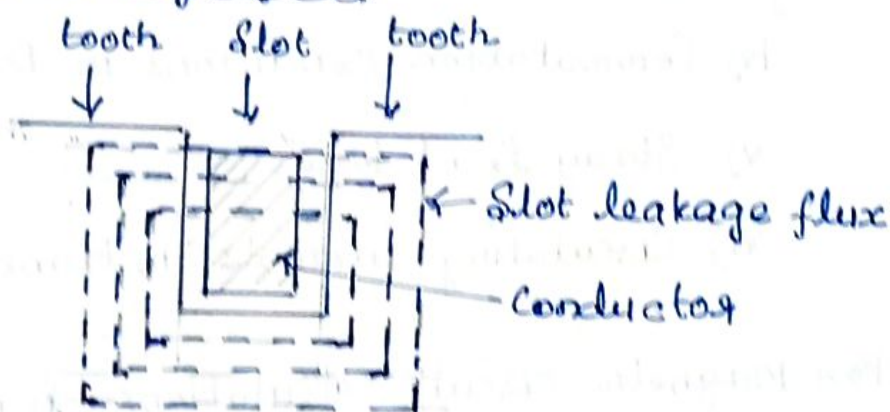 tooth slot tooth
slot leakage flux
Conductor